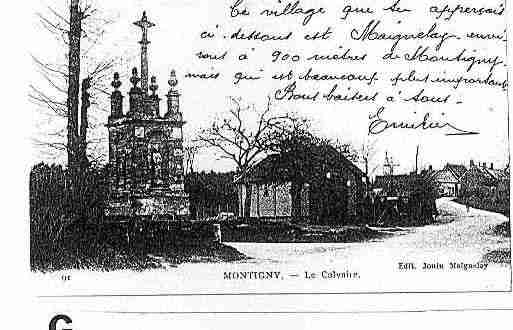 Ce village que tu aperçois
ci-dessous est Maignelay envi
rons à 900 mètres de Montigny
mais qui est beaucoup plus important
Bons baisers à tous.
Emilien
91
MONTIGNY. — Le Calvaire.
Edit. Jouin Maignelay
G